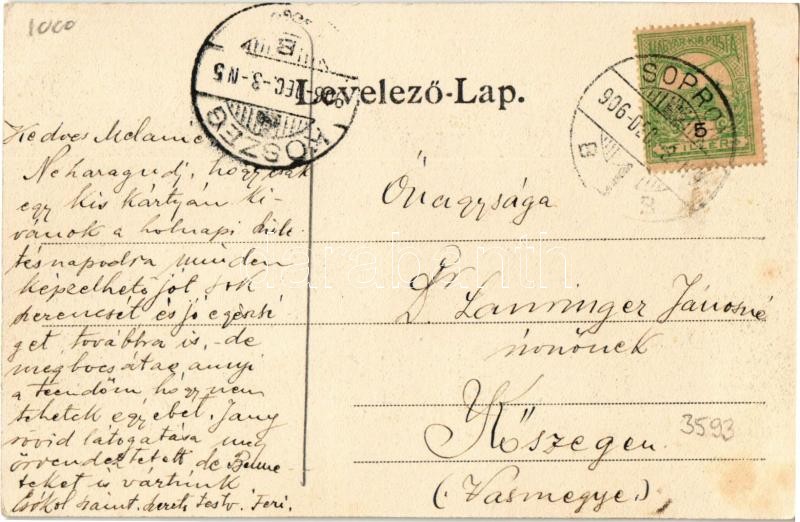 1000
KŐSZEG
906 DEC. -3-N5
B
MAGYAR KIR. POSTA
5
FILLÉR
SOPRON
906
B
Levelező-Lap.
Kedves Melanie
Neharagudj, hogy csak
egy kis kártyán ki-
vánok a holnapi szüle-
tésnapodra minden
képzelhető jót sok
szerencsét és jó egészsé
get továbbra is, - de
megbocsátas annyi
a teendőm hogy nem
tehetek egyebet. Jany
rövid látogatása meg
örvendeztetett de Benne-
teket is vártunk
Csókol szeret. testv. Feri.
Őnagysága
Dr. Lauringer Jánosné
úrnőnek
Kőszegen
(Vasmegye.)
3593
darabanth